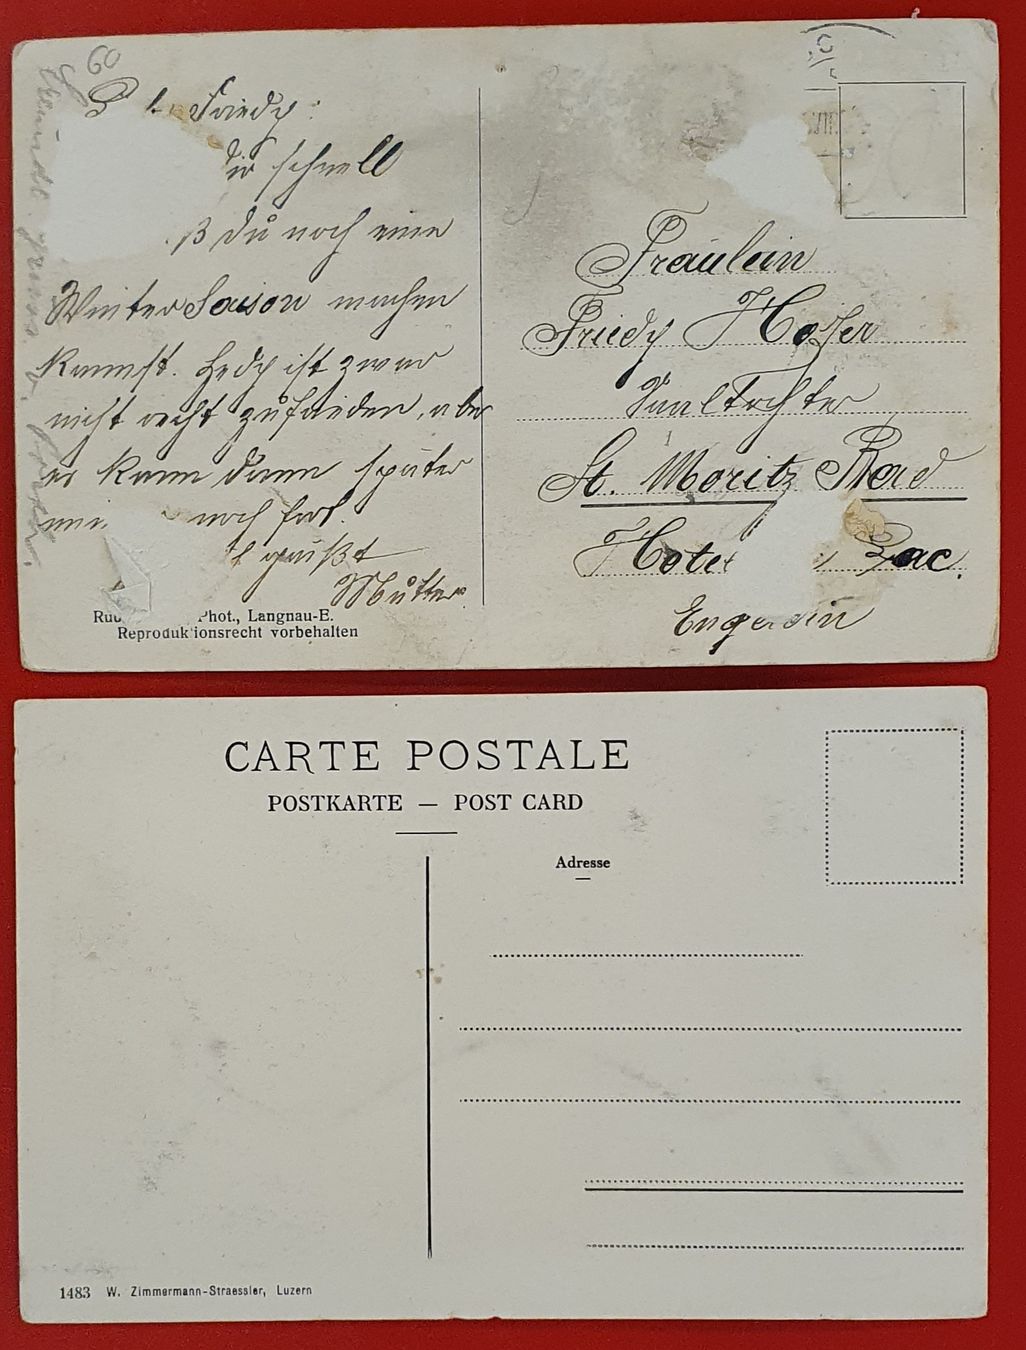 60
Friedy:
dir schnell
ß du noch eine
Winter Saison machen
kannst. Hedy ist zwar
nicht recht zufrieden, aber
er kann dann später
noch fort.
grüßt
Mutter.
Phot., Langnau-E.
Reproduktionsrecht vorbehalten
Fräulein
Friedy Hofer
Saaltochter
St. Moritz Bad
Hotel
Engadin
CARTE POSTALE
POSTKARTE — POST CARD
Adresse
1483 W. Zimmermann-Straessler, Luzern